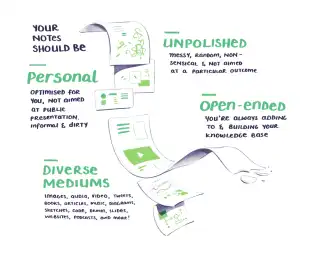 YOUR
NOTES
SHOULD BE
UNPOLISHED
MESSY, RANDOM, NON-
SENSICAL & NOT AIMED
AT A PARTICULAR OUTCOME
Personal
OPTIMISED FOR
YOU, NOT AIMED
AT PUBLIC
PRESENTATION.
INFORMAL & DIRTY
OPEN-ENDED
YOU'RE ALWAYS ADDING
TO & BUILDING YOUR
KNOWLEDGE BASE
DIVERSE
MEDIUMS
IMAGES, AUDIO, VIDEO, TWEETS,
BOOKS, ARTICLES, MUSIC, DIAGRAMS,
SKETCHES, CODE, DEMOS, SLIDES,
WEBSITES, PODCASTS, AND MORE!